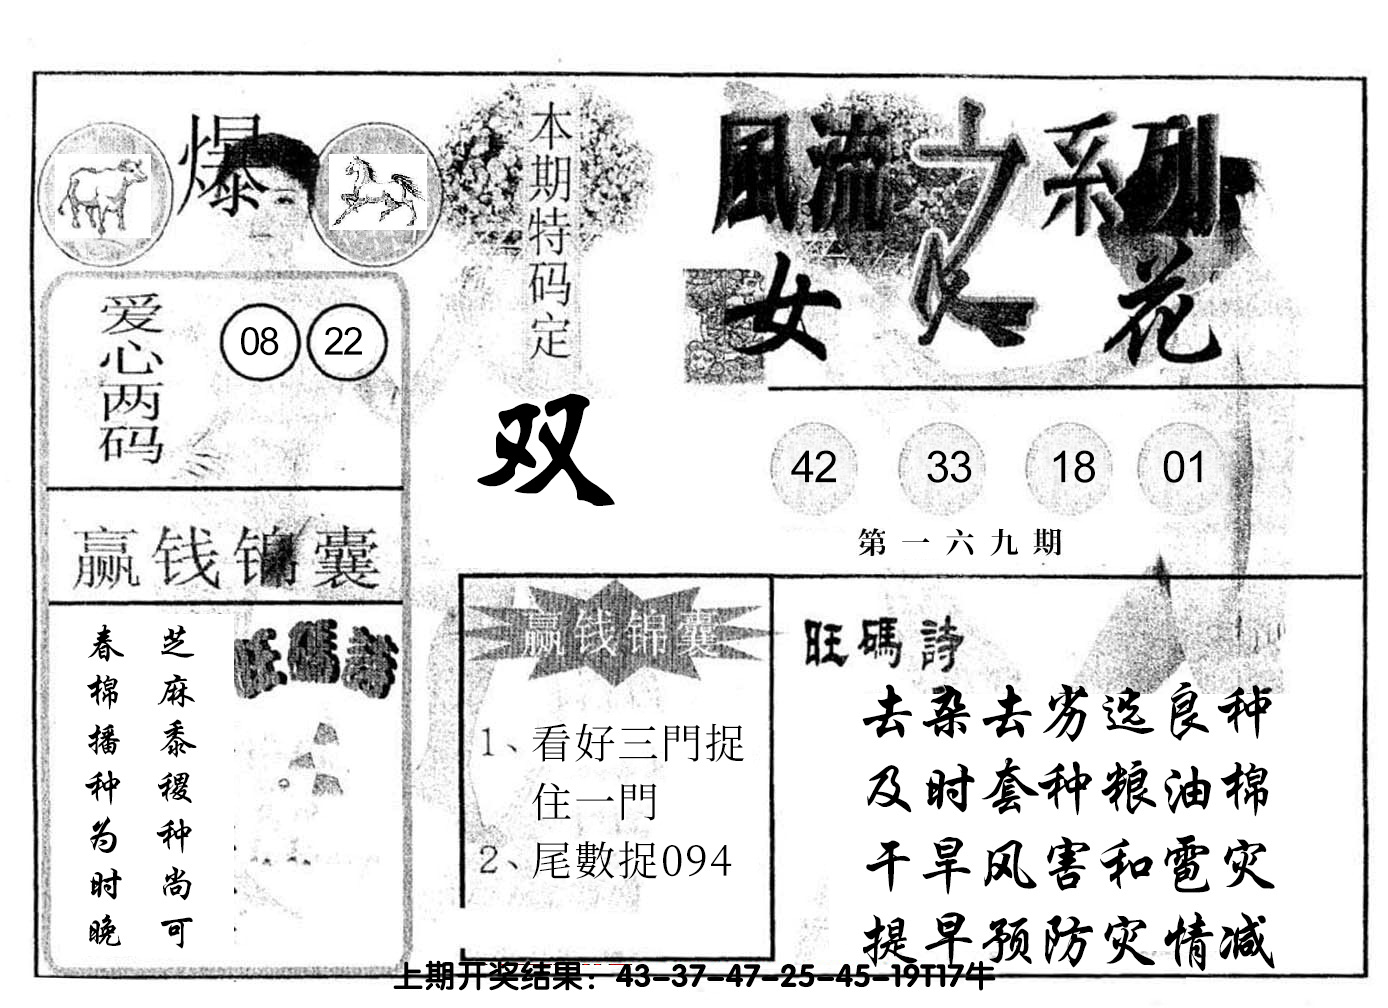 爆
本期特码定
双
風流之系列
女人花
爱心两码
08 22
42 33 18 01
第一六九期
赢钱锦囊
旺碼詩
芝麻黍稷种尚可
春棉播种为时晚
赢钱锦囊
1、看好三門捉
住一門
2、尾數捉094
旺碼詩
去杂去劣选良种
及时套种粮油棉
干旱风害和雹灾
提早预防灾情减
上期开奖结果：43-37-47-25-45-19T17牛